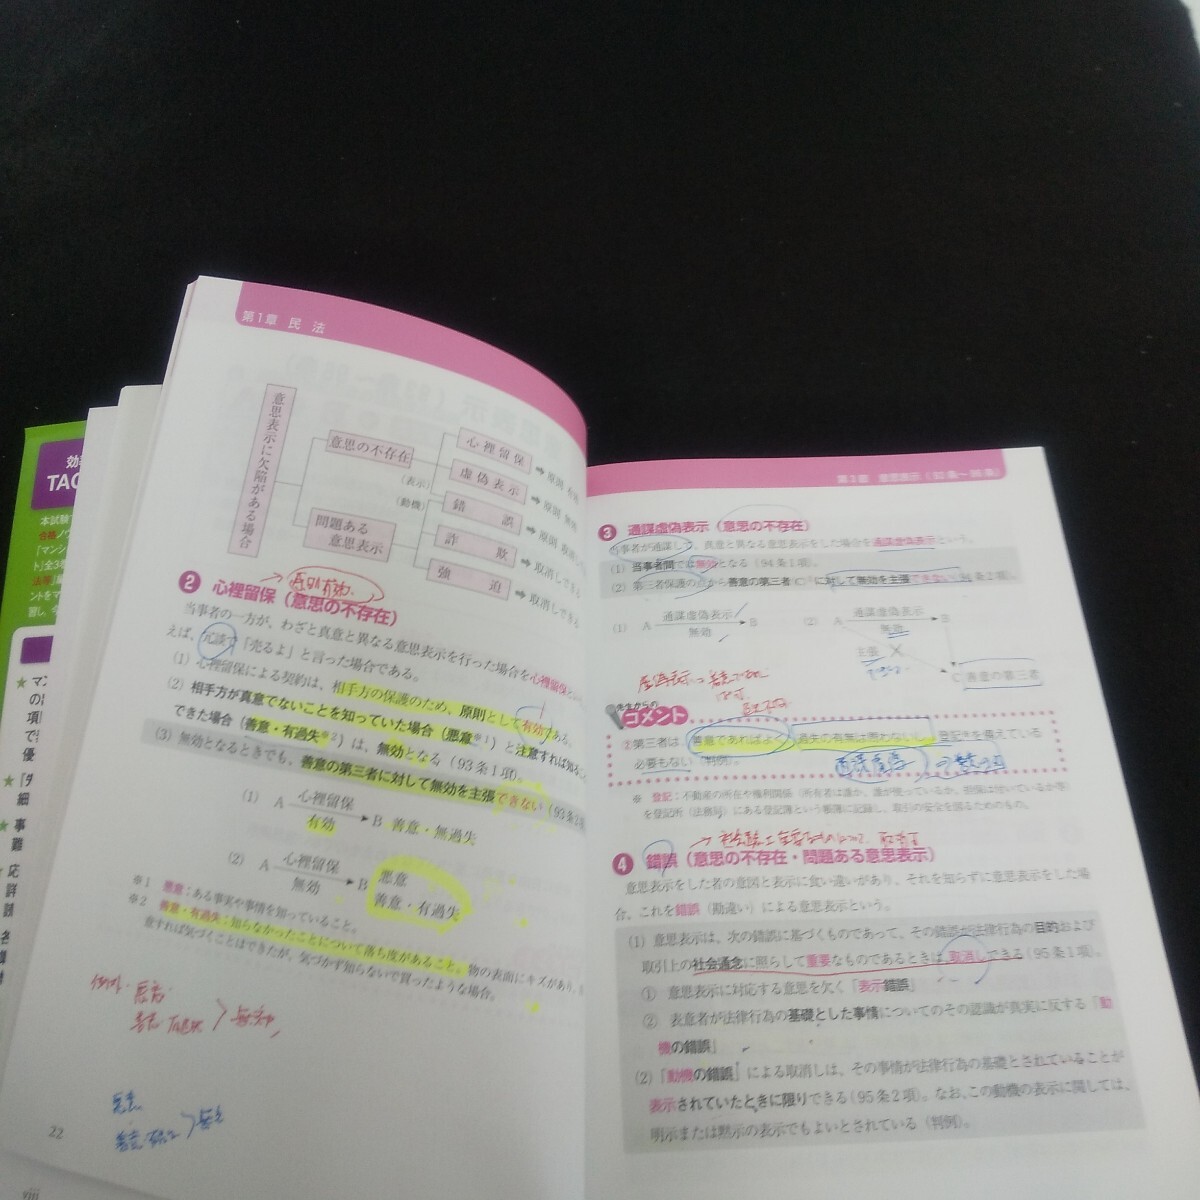 第1章 民 法
意思表示に欠陥がある場合
意思の不存在
(表示)
(動機)
問題ある
意思表示
心裡留保
虚偽表示
錯 誤
詐 欺
強 迫
➡取消しできる
➡取消しできる
2 心裡留保（意思の不存在）
当事者の一方が、わざと真意と異なる意思表示を行った場合を心裡留保とい
えば、冗談で「売るよ」と言った場合である。
(1) 心裡留保による契約は、相手方の保護のため、原則として有効である。
(2) 相手方が真意でないことを知っていた場合（悪意※1）と注意すれば知るこ
できた場合（善意・有過失※2）は、無効となる（93条1項）。
(3) 無効となるときでも、善意の第三者に対して無効を主張できない（93条2
(1) A 心裡留保 有効 B 善意・無過失
(2) A 心裡留保 無効 B 悪意
善意・有過失
※1 悪意：ある事実や事情を知っていること。
※2 善意・有過失：知らなかったことについて落ち度があること。物の表面にキズがあり、
意すれば気づくことはできたが、気づかず知らないで買ったような場合。
22
viii
TAC
本試験
合格ノウ
『マンシ
ト』全3
第3節 意思表示（93条〜96条）
3 通謀虚偽表示（意思の不存在）
当事者が通謀して、真意と異なる意思表示をした場合を通謀虚偽表示という。
(1) 当事者間では無効となる（94条1項）。
(2) 第三者保護の点から善意の第三者（C）に対して無効を主張できない（94条2項）。
(1) A 通謀虚偽表示 無効 B
(2) A 通謀虚偽表示 無効 B
主張
できない
C 善意の第三者
先生からの
コメント
①第三者は、善意であればよく、過失の有無は問わないし、登記※を備えている
必要もない（判例）。
※ 登記：不動産の所在や権利関係（所有者は誰か、誰が使っているか、担保は付いているか等）
を登記所（法務局）にある登記簿という帳簿に記録し、取引の安全を図るためのもの。
4 錯誤（意思の不存在・問題ある意思表示）
意思表示をした者の意図と表示に食い違いがあり、それを知らずに意思表示をした場
合、これを錯誤（勘違い）による意思表示という。
(1) 意思表示は、次の錯誤に基づくものであって、その錯誤が法律行為の目的および
取引上の社会通念に照らして重要なものであるときは、取消しできる（95条1項）。
① 意思表示に対応する意思を欠く「表示錯誤」
② 表意者が法律行為の基礎とした事情についてのその認識が真実に反する「動
機の錯誤」
(2) 「動機の錯誤」による取消しは、その事情が法律行為の基礎とされていることが
表示されていたときに限りできる（95条2項）。なお、この動機の表示に関しては、
明示または黙示の表示でもよいとされている（判例）。